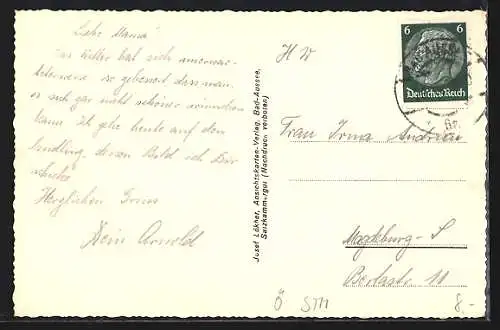 Liebe Mama!
das Wetter hat sich
so gebessert dass man
es sich gar nicht schöner wünschen
kann. Ich gehe heute auf den
Sandling, dessen Bild ich Dir
schicke
Herzlichen Gruss
Dein Arnold
Josef Lökher, Ansichtskarten-Verlag, Bad-Aussee,
Salzkammergut (Nachdruck verboten)
H W
6 6
Deutsches Reich
Frau Irma Andreae
Magdeburg - S
11
Ö
8.-